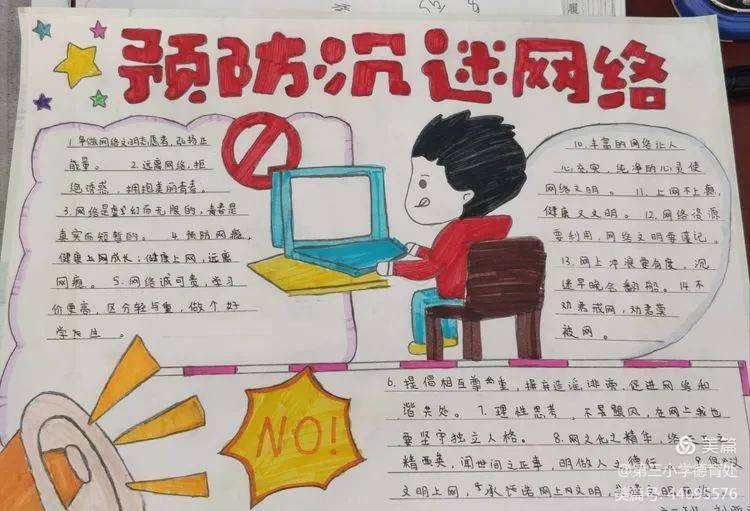 预防沉迷网络
1.争做网络文明志愿者,弘扬正
能量。 2.远离网络,拒
绝诱惑,拥抱美丽青春。
3.网络是虚幻而无限的,青春是
真实而短暂的。 4.预防网瘾,
健康成长;健康上网,远离
网瘾。 5.网络诚可贵,学习
价更高,区分轻与重,做个好
学生。
10.丰富的网络让人
心充实,纯净的心灵使
网络文明。 11.上网不上瘾,
健康又文明。 12.网络资源
要利用,网络文明要谨记。
13.网上冲浪要有度,沉
迷早晚会翻船。 14.不
劝君戒网,劝君莫
被网。
NO!
6.提倡相互尊重,摒弃造谣诽谤,促进网络和
谐共处。 7.理性思考,不是跟风,在网上我也
要坚守独立人格。 8.网文化之精华,
精西奂,闻世间之正事,明做人之德行
文明上网,承诺网上文明,
美篇
@第二小学德育处
美篇号:44095576